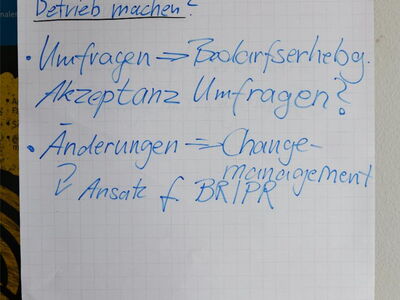 Betrieb machen?
• Umfragen => Bedarfserhebg.
Akzeptanz Umfragen?
• Änderungen => Change-
management
? Ansatz f BR/PR